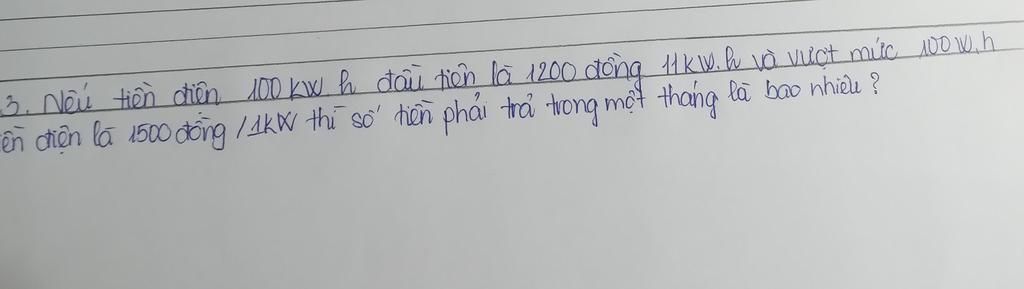 3. Nếu tiền điện 100 kW.h đầu tiên là 1200 đồng /1kW.h và vượt mức 100 W.h
ền điện là 1500 đồng /1kW thì số tiền phải trả trong một tháng là bao nhiêu?